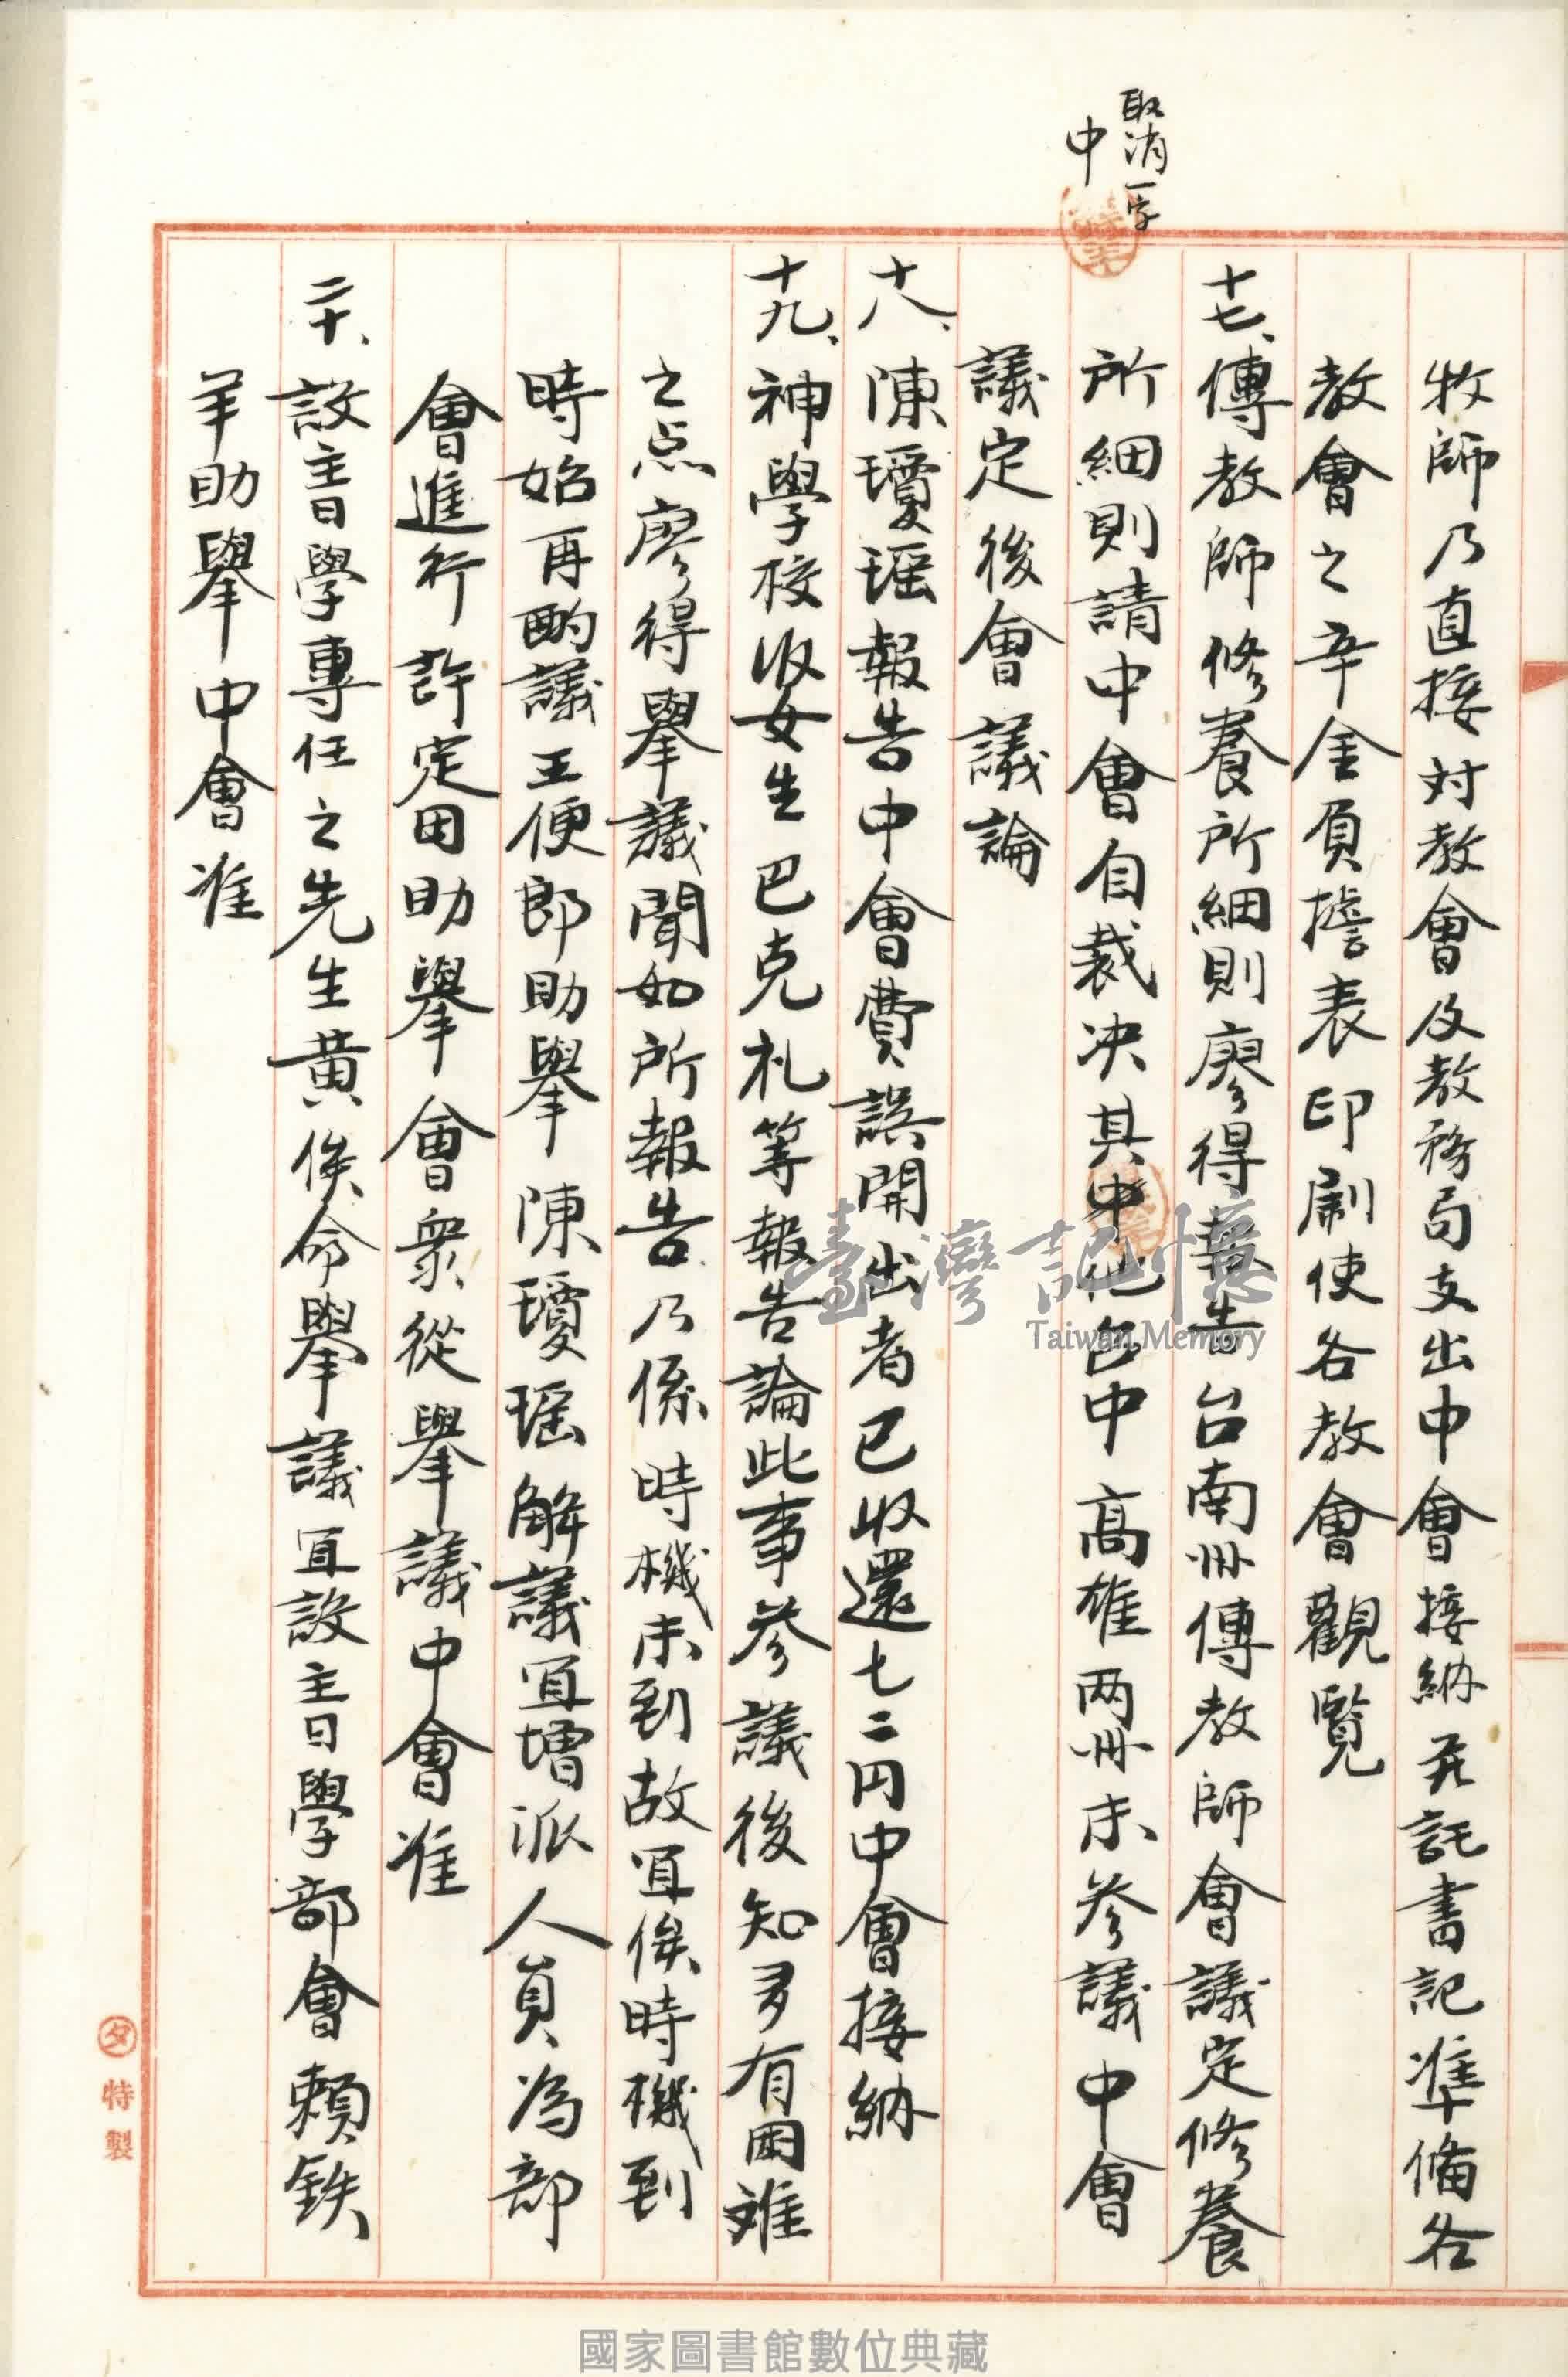 取消一字
中
牧師乃直接対教會及教務局支出中會接納并託書記準備各
教會之辛金負擔表印刷使各教會觀覧
十七、傳教師修養所細則廖得報告台南州傳教師會議定修養
所細則請中會自裁决其中他包中高雄两州未参議中會
議定後會議論
十八、陳瓊瑶報告中會費誤開出者已收還七二円中會接納
十九、神學校收女生巴克礼等報告論此事参議後知多有困难
之点廖得舉議聞如所報告乃係時機未到故宜俟時機到
時始再酌議王便郎助舉陳瓊瑶解議宜增派人員為部
會進行許定田助舉會衆從舉議中會准
二十、設主日學專任之先生黄俟命舉議宜設主日學部會賴鉄
羊助舉中會准
タ特製
臺灣記憶
Taiwan Memory
國家圖書館數位典藏